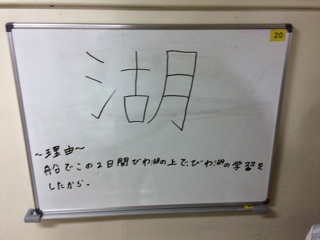 20
湖
～理由～
船でこの2日間びわ湖の上で、びわ湖の学習を
したから。